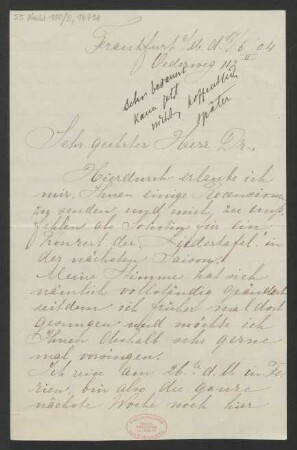 Frankfurt a/M. d. 17/6 04
Oederweg 112 II
sehr bedauert
kann jetzt
nicht, hoffentlich
später
Sehr geehrter Herr Dr.,
Hierdurch erlaube ich
mir Ihnen einige Recensionen
zu senden und mich zu emp-
fehlen als Solistin für ein
Konzert der "Liedertafel" in
der nächsten Saison.
Meine Stimme hat sich
nämlich vollständig geändert
seitdem ich früher mal dort
gesungen und möchte ich
Ihnen deshalb sehr gerne
mal vorsingen.
Ich reise am 26ten d. M. in Fe-
rien, bin also die ganze
nächste Woche noch hier